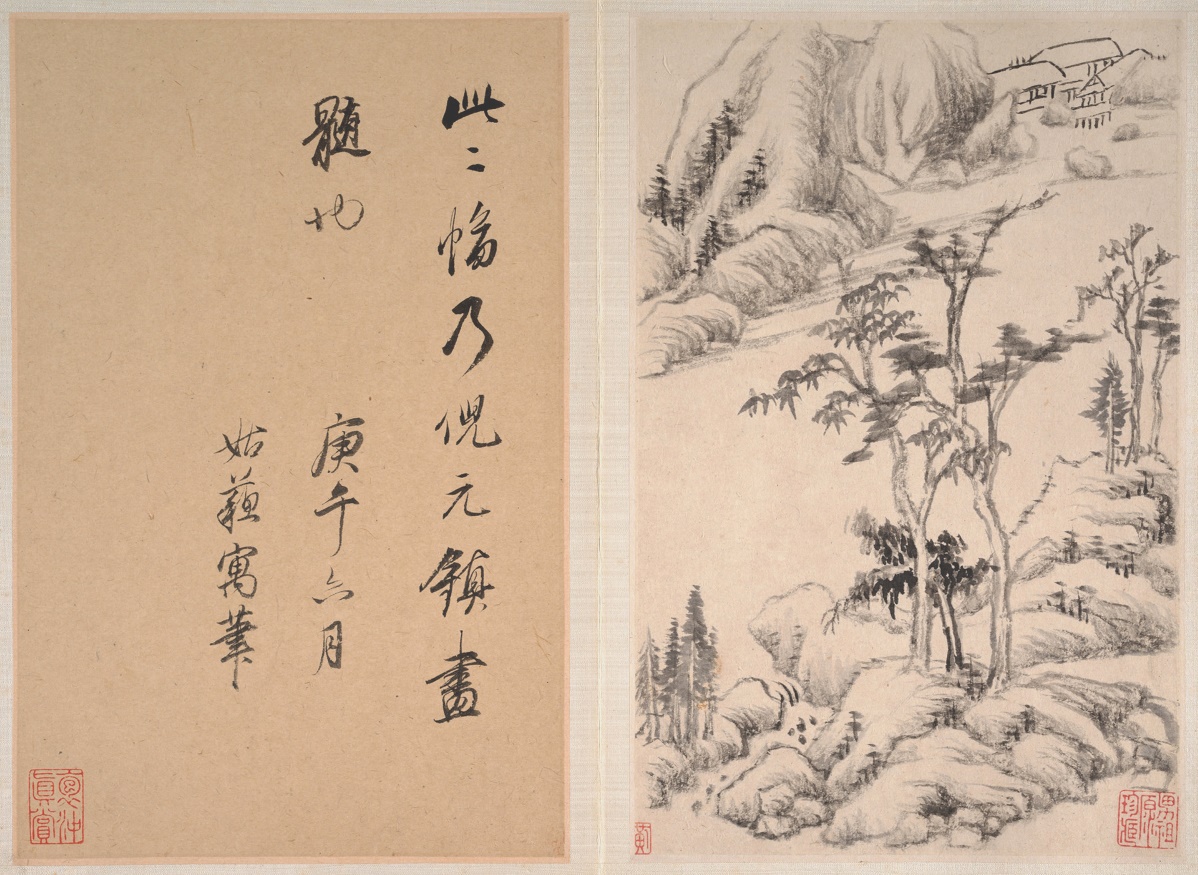 此二幅乃倪元鎮畫
髓也
庚午六月
姑蘓寓筆